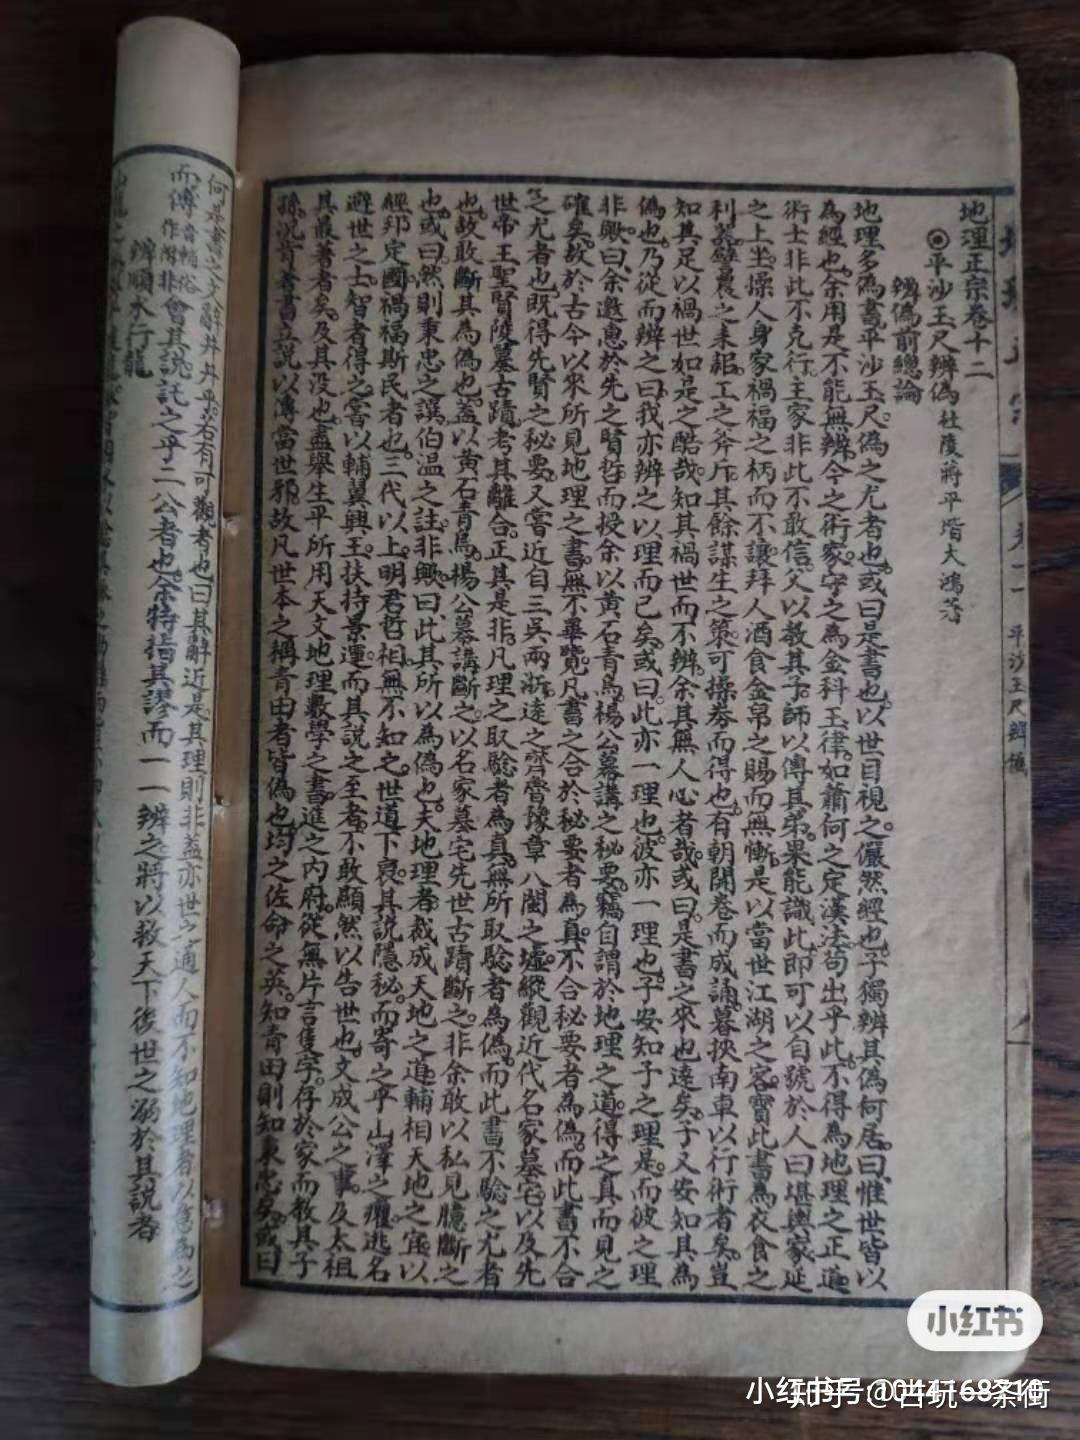 地理正宗卷十二
平沙玉尺辨偽 杜陵蔣平階大鴻著
辨偽前總論
地理多偽書平沙玉尺偽之尤者也或曰是書也以世目視之儼然經也子獨辨其偽何居曰惟世皆以
為經也余用是不能無辨今之術家守之為金科玉律如蕭何之定漢法苟出乎此不得為地理之正道
術士非此不克行主家非此不敢信父以教其子師以傳其弟果能識此即可以自號於人曰堪輿家延
之上坐操人身家禍福之柄而不讓拜人酒食金帛之賜而無慚是以當世江湖之客寶此書為衣食之
利器譬農之耒耜工之斧斤其餘謀生之策可操券而得也有朝開卷而成誦暮挾南車以行術者矣豈
知其足以禍世如是之酷哉知其禍世而不辨余其無人心者哉或曰是書之來也遠矣子又安知其為
偽也乃從而辨之曰我亦辨之以理而已矣或曰此亦一理也彼亦一理也子安知子之理是而彼之理
非歟曰余邀惠於先之賢哲而授余以黃石青烏楊公幕講之秘要竊自謂於地理之道得之真而見之
確矣故於古今以來所見地理之書無不畢覽凡書之合於秘要者為真不合秘要者為偽而此書不合
之尤者也既得先賢之秘要又嘗近自三吳兩浙遠之齊魯豫章八閩之墟縱觀近代名家墓宅以及先
世帝王聖賢陵墓古蹟考其離合正其是非凡理之取驗者為真無所取驗者為偽而此書不驗之尤者
也故敢斷其為偽也蓋以黃石青烏楊公幕講斷之以名家墓宅先世古蹟斷之非余敢以私見臆斷之
也或曰然則秉忠之譔伯溫之註非歟曰此其所以為偽也夫地理者裁成天地之道輔相天地之宜以
經邦定國禍福斯民者也三代以上明君哲相無不知之世道下衰其說隱秘而寄之乎山澤之癯逃名
避世之士智者得之嘗以輔翼興王扶持景運而其說之至者不敢顯然以告世也文成公之事及太祖
其最著者矣及其沒也盡舉生平所用天文地理數學之書進之內府從無片言隻字存於家而教其子
孫況肯著書立說以傳當世邪故凡世本之稱青田者皆偽也均之佐命之英知青田則知秉忠矣或曰
何是書之文辭井井乎若有可觀者也曰其辭近是其理則非蓋亦世之通人而不知地理者以意為之
而傅會其說託之乎二公者也余特指其謬而一一辨之將以救天下後世之溺於其說者
辨順水行龍
卷十二 平沙玉尺辨偽
小红书
小红书号
知乎 @古玩一条街